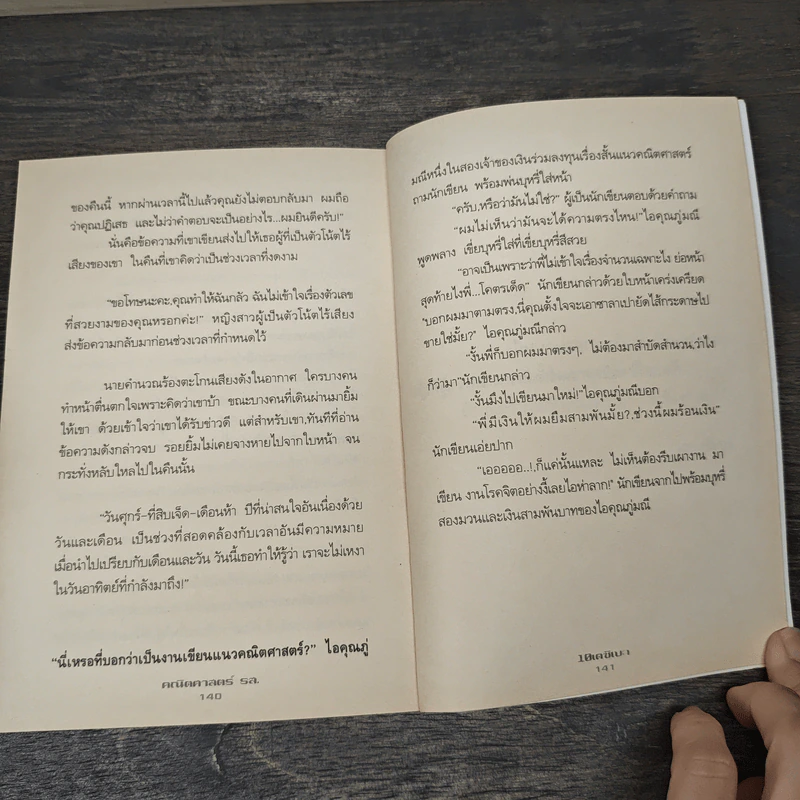 ของคืนนี้ หากผ่านเวลานี้ไปแล้วคุณยังไม่ตอบกลับมา ผมถือ
ว่าคุณปฏิเสธ และไม่ว่าคำตอบจะเป็นอย่างไร...ผมยินดีครับ!"
นั่นคือข้อความที่เขาเขียนส่งไปให้เธอผู้ที่เป็นตัวโน้ตไร้
เสียงของเขา ในคืนที่เขาคิดว่าเป็นช่วงเวลาที่งดงาม
"ขอโทษนะคะ,คุณทำให้ฉันกลัว ฉันไม่เข้าใจเรื่องตัวเลข
ที่สวยงามของคุณหรอกค่ะ!" หญิงสาวผู้เป็นตัวโน้ตไร้เสียง
ส่งข้อความกลับมาก่อนช่วงเวลาที่กำหนดไว้
นายคำนวณร้องตะโกนเสียงดังในอากาศ ใครบางคน
ทำหน้าตื่นตกใจเพราะคิดว่าเขาบ้า ขณะบางคนที่เดินผ่านมายิ้ม
ให้เขา ด้วยเข้าใจว่าเขาได้รับข่าวดี แต่สำหรับเขา,ทันทีที่อ่าน
ข้อความดังกล่าวจบ รอยยิ้มไม่เคยจางหายไปจากใบหน้า จน
กระทั่งหลับใหลไปในคืนนั้น
"วันศุกร์-ที่สิบเจ็ด-เดือนห้า ปีที่น่าสนใจอันเนื่องด้วย
วันและเดือน เป็นช่วงที่สอดคล้องกับเวลาอันมีความหมาย
เมื่อนำไปเปรียบกับเดือนและวัน วันนี้เธอทำให้รู้ว่า เราจะไม่เหงา
ในวันอาทิตย์ที่กำลังมาถึง!"
"นี่เหรอที่บอกว่าเป็นงานเขียนแนวคณิตศาสตร์?" ไอคุณภู่
คณิตศาสตร์ รส.
140
มณีหนึ่งในสองเจ้าของเงินร่วมลงทุนเรื่องสั้นแนวคณิตศาสตร์
ถามนักเขียน พร้อมพ่นบุหรี่ใส่หน้า
"ครับ,หรือว่ามันไม่ใช่?" ผู้เป็นนักเขียนตอบด้วยคำถาม
"ผมไม่เห็นว่ามันจะได้ความตรงไหน!"ไอคุณภู่มณี
พูดพลาง เขี่ยบุหรี่ใส่ที่เขี่ยบุหรี่สีสวย
"อาจเป็นเพราะว่าพี่ไม่เข้าใจเรื่องจำนวนเฉพาะไง ย่อหน้า
สุดท้ายไงพี่...โคตรเด็ด" นักเขียนกล่าวด้วยใบหน้าเคร่งเครียด
"บอกผมมาตามตรง,นี่คุณตั้งใจจะเอาซาลาเปายัดไส้กระดาษไป
ขายใช่มั้ย?" ไอคุณภู่มณีกล่าว
"งั้นพี่ก็บอกผมมาตรงๆ, ไม่ต้องมาสำบัดสำนวน,ว่าไง
ก็ว่ามา"นักเขียนกล่าว
"งั้นมึงไปเขียนมาใหม่!"ไอคุณภู่มณีบอก
"พี่มีเงินให้ผมยืมสามพันมั้ย?,ช่วงนี้ผมร้อนเงิน"
นักเขียนเอ่ยปาก
"เออออออ..!,ก็แค่นั้นแหละ ไม่เห็นต้องรีบเผางาน มา
เขียน งานโรคจิตอย่างงี้เลยไอห่าลาก!" นักเขียนจากไปพร้อมบุหรี่
สองมวนและเงินสามพันบาทของไอคุณภู่มณี
141